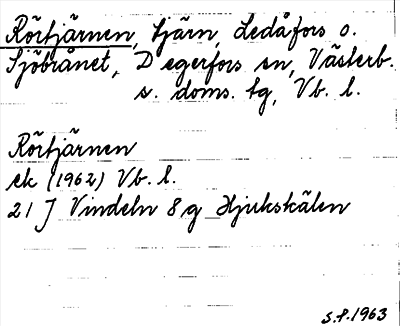 Rörtjärnen, tjärn, Ledåfors o.
Sjöbrånet, Degerfors sn, Västerb.
s. doms. tg, Vb. l.
Rörtjärnen
ek (1962) Vb. l.
21 J Vindeln 8 g Hjukskälen
S.P. 1963